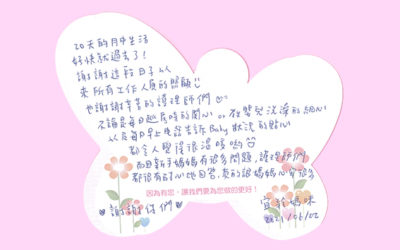 20天的月中生活
好快就過去了!
謝謝這段日子以
來所有工作人員的照顧
也謝謝辛苦的護理師們
不論是每日起居時的關心 or 在嬰兒洗澡的細心
以及每日早上晚告訴Baby狀況的貼心
都令人覺得很溫暖喲
而且新手媽媽有很多問題, 護理師們
都很有耐心地回答, 真的讓媽媽心安很多
因為有您,讓我們要為您做的更好!
謝謝你們
媽咪
2021/06/02